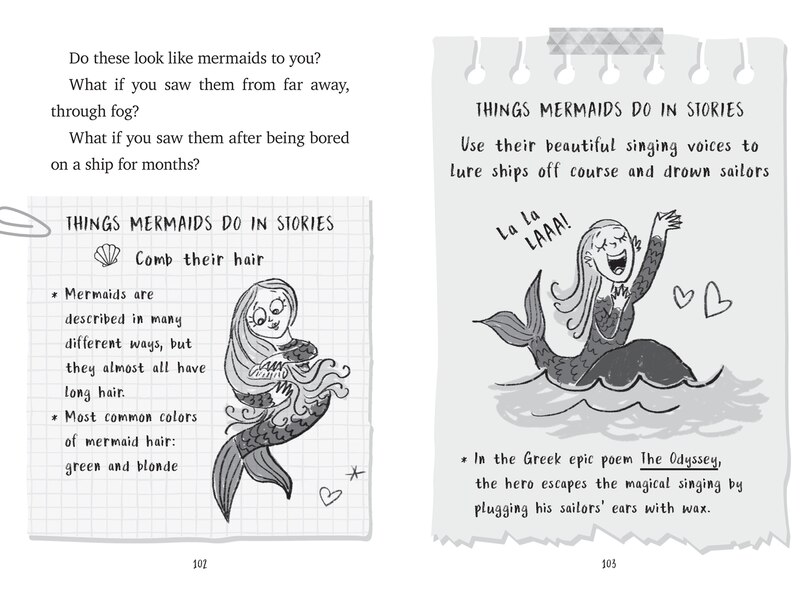 Do these look like mermaids to you?
What if you saw them from far away,
through fog?
What if you saw them after being bored
on a ship for months?
THINGS MERMAIDS DO IN STORIES
Comb their hair
* Mermaids are
described in many
different ways, but
they almost all have
long hair.
* Most common colors
of mermaid hair:
green and blonde
102
THINGS MERMAIDS DO IN STORIES
Use their beautiful singing voices to
lure ships off course and drown sailors
La La
LAAA!
* In the Greek epic poem The Odyssey,
the hero escapes the magical singing by
plugging his sailors' ears with wax.
103